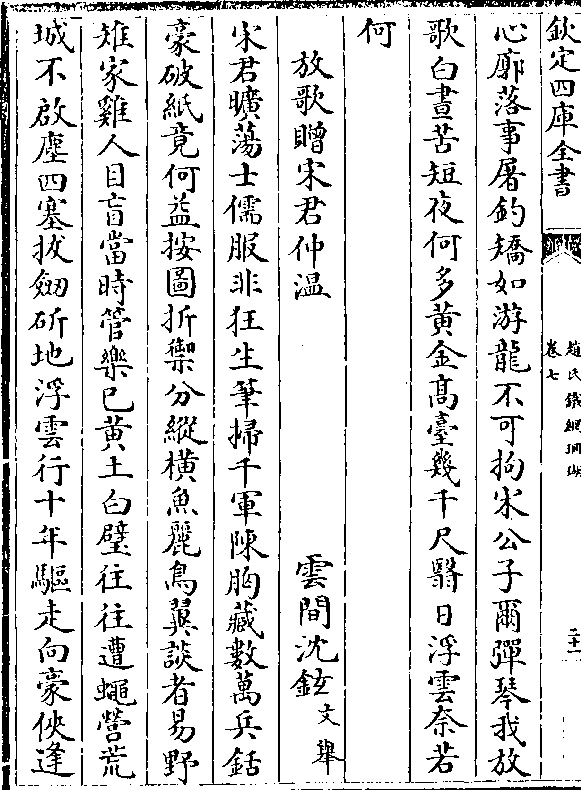 欽定四庫全書
趙氏鐵網珊瑚
卷七
心廓落事屠釣矯如游龍不可拘宋公子爾彈琴我放
歌白晝苦短夜何多黃金髙臺幾千尺翳日浮雲奈若
何
放歌贈宋君仲温
雲間沈鉉文舉
宋君曠蕩士儒服非狂生筆掃千軍陳胸藏數萬兵銛
豪破紙竟何益按圖折禦分縱橫魚麗鳥翼談者易野
雉家雞人目盲當時管樂已黃土白璧往往遭蠅營荒
城不啟塵四塞拔劒斫地浮雲行十年驅走向豪俠逢